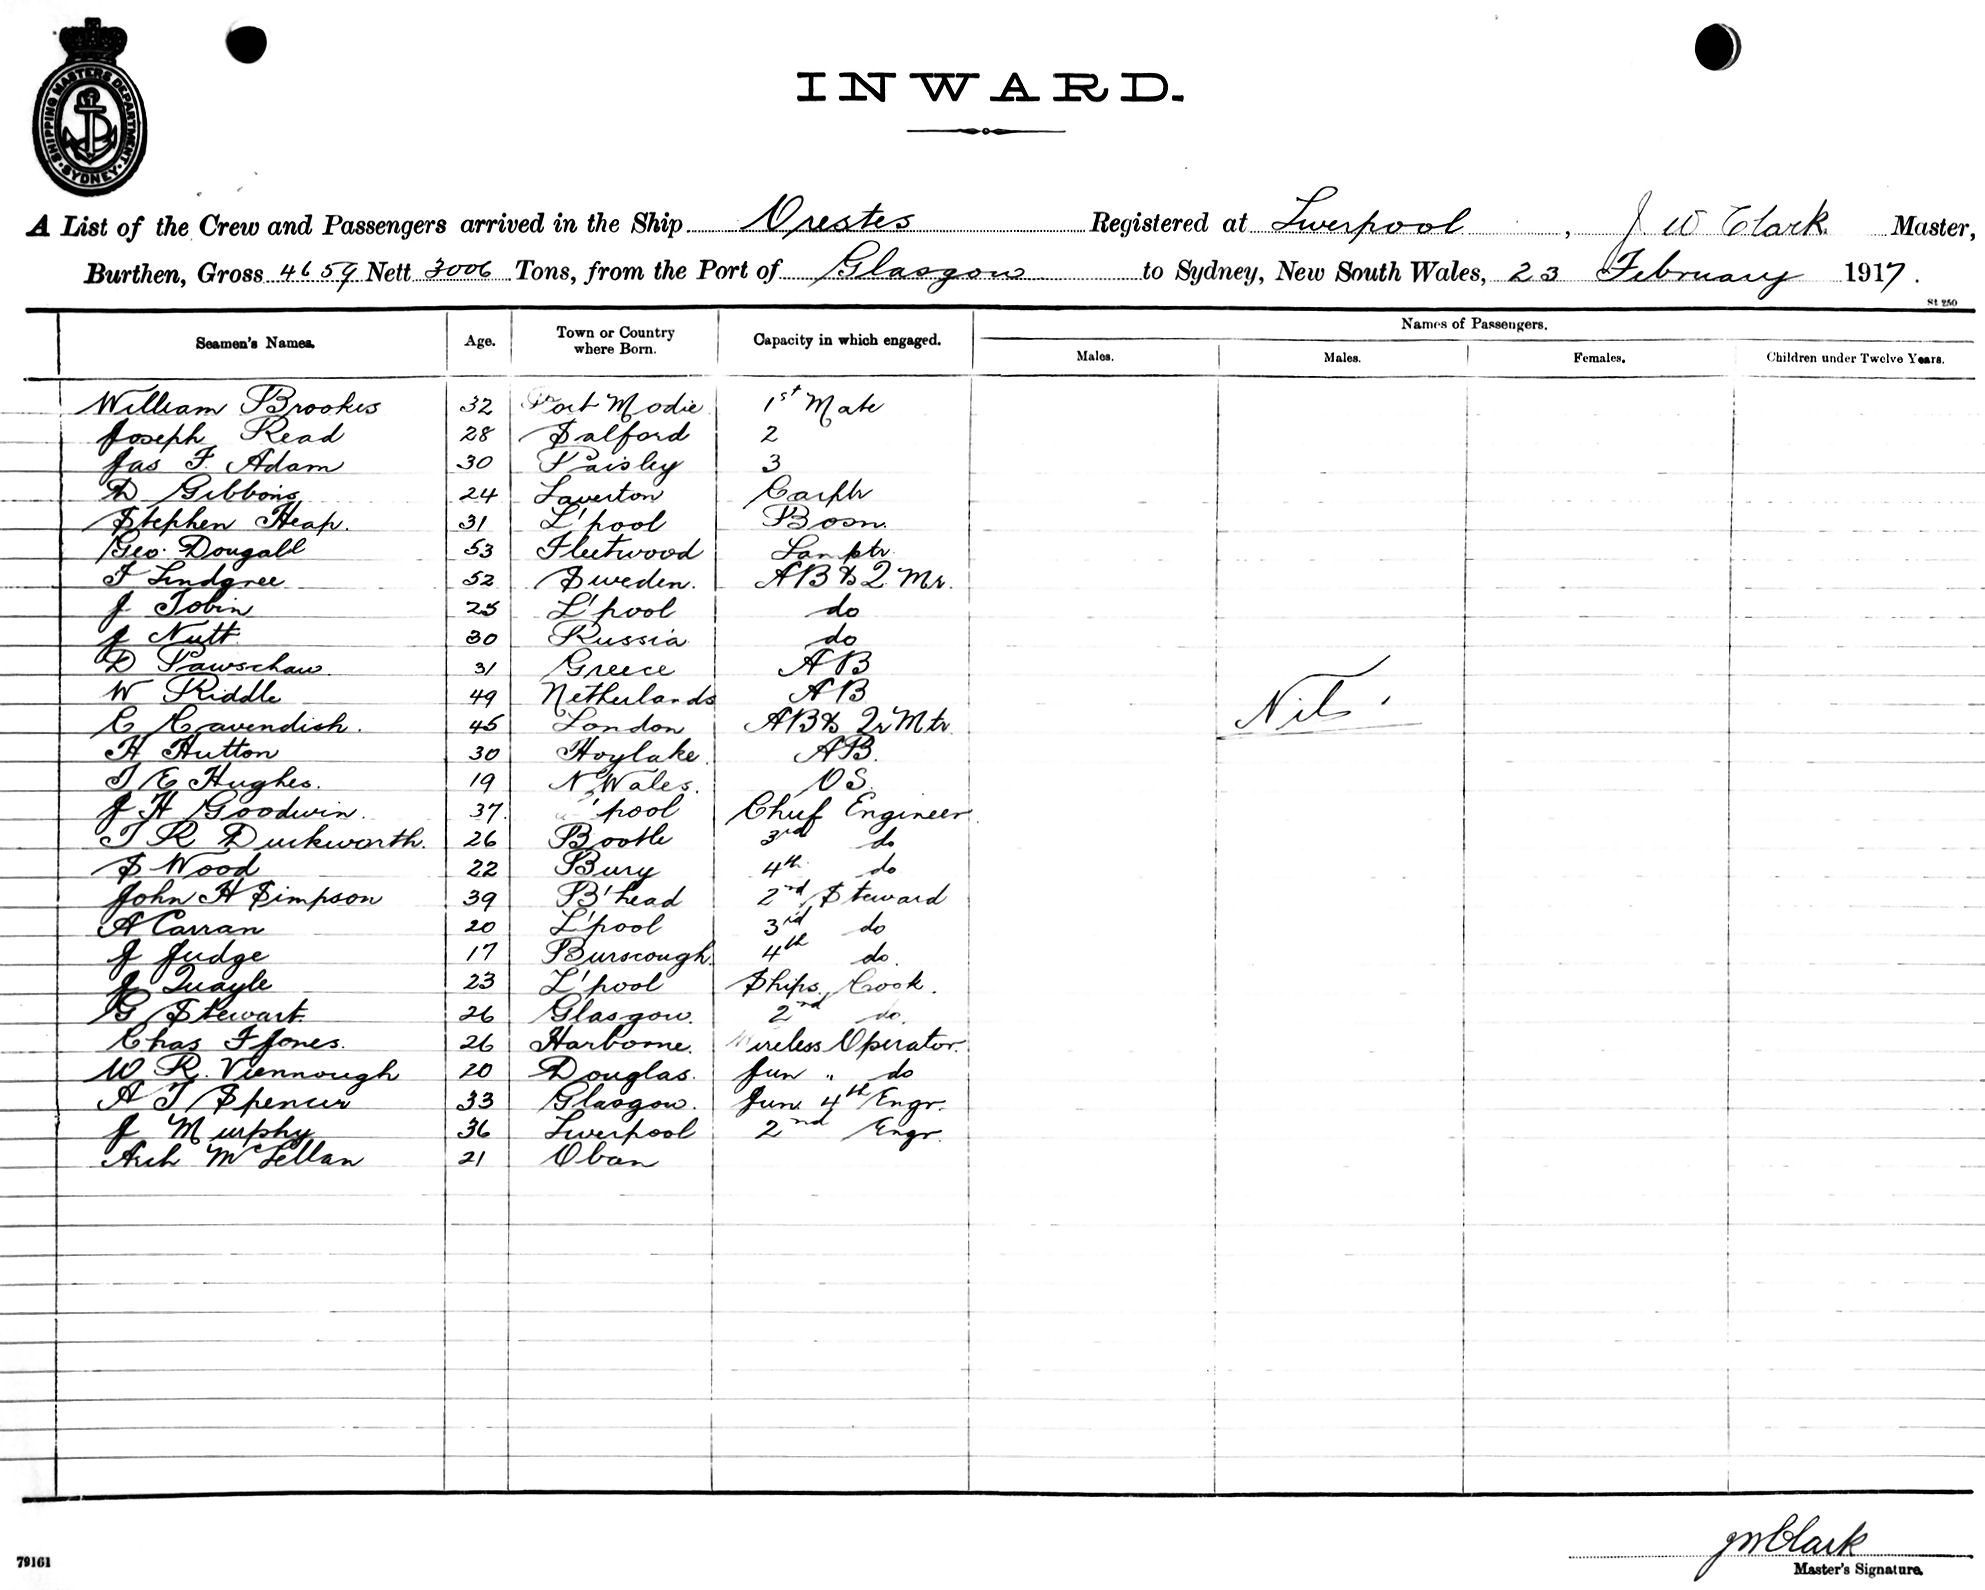 SHIPPING MASTERS DEPARTMENT
SYDNEY
INWARD.
A List of the Crew and Passengers arrived in the Ship Orestes Registered at Liverpool, J W Clark Master,
Burthen, Gross 4659 Nett 3006 Tons, from the Port of Glasgow to Sydney, New South Wales, 23 February 1917.
St 250
Seamen's Names. Age. Town or Country where Born. Capacity in which engaged. Names of Passengers.
Males. Males. Females. Children under Twelve Years.
William Brookes 32 Port Modie 1st Mate
Joseph Read 28 Salford 2
Jas F. Adam 30 Paisley 3
D Gibbons 24 Laverton Carptr
Stephen Heap. 31 L'pool Bosn.
Geo. Dougall 53 Fleetwood Lamptr
F Lindgree 52 Sweden. AB & Q Mr.
J Tobin 25 L'pool do
J Nutt 30 Russia do
D Pawschaw 31 Greece AB
W Riddle 49 Netherlands AB
C Cavendish. 45 London AB & Qr Mtr
Nil
H Hutton 30 Hoylake. AB.
T E Hughes. 19 N Wales. OS.
J H Goodwin. 37. 'pool Chief Engineer
T R Duckworth. 26 Bootle 3rd do
S Wood 22 Bury 4th do
John H Simpson 39 B'head 2nd Steward
A Carran 20 L'pool 3rd do
J Judge 17 Burscough. 4th do.
J Quayle 23 L'pool Ships Cook.
G Stewart. 26 Glasgow. 2nd do.
Chas F Jones. 26 Harborne. Wireless Operator.
W R. Viennough 20 Douglas. Jun " do
A T Spencer 33 Glasgow. Jun. 4th Engr.
J Murphy 36 Liverpool 2nd Engr.
Arch McLellan 21 Oban
J W Clark
Master's Signature.
79161